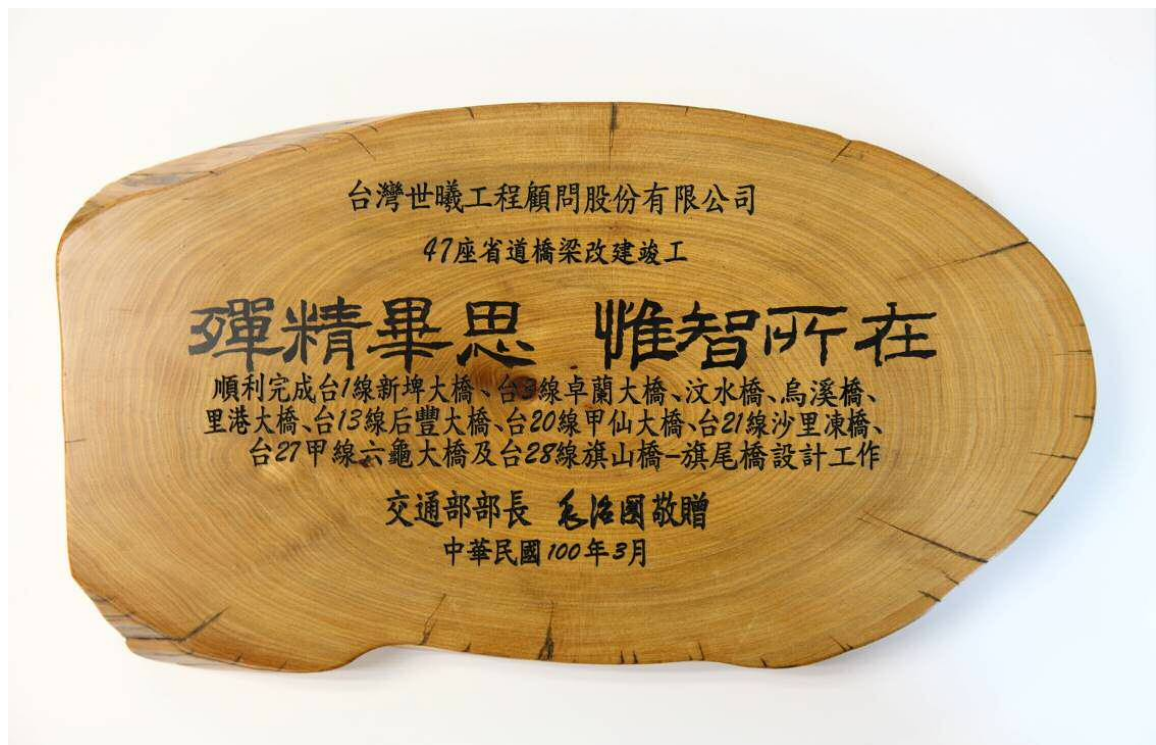 台灣世曦工程顧問股份有限公司
47座省道橋梁改建竣工
殫精畢思 惟智所在
順利完成台1線新埤大橋、台3線卓蘭大橋、汶水橋、烏溪橋、
里港大橋、台13線后豐大橋、台20線甲仙大橋、台21線沙里凍橋、
台27甲線六龜大橋及台28線旗山橋-旗尾橋設計工作
交通部部長 毛治國敬贈
中華民國100年3月